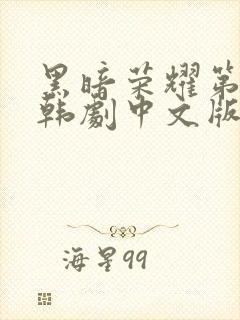 黑暗荣耀第
韩劇中文版
海星99